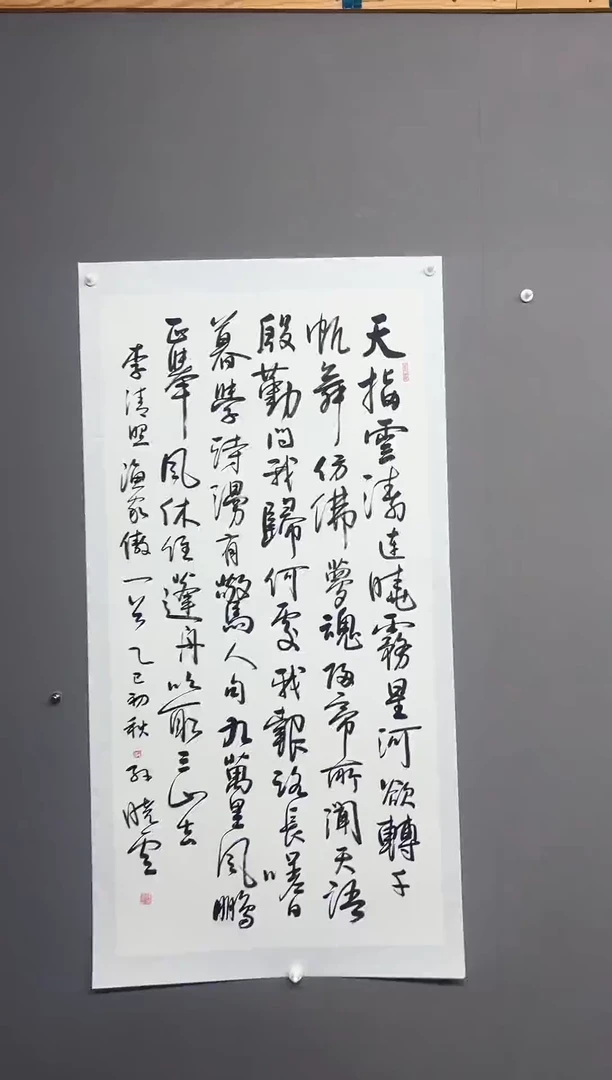 天接雲濤連曉霧星河欲轉千
帆舞仿佛夢魂歸帝所聞天語
殷勤問我歸何處我報路長嗟日
暮學詩漫有驚人句九萬里風鵬
正舉風休住蓬舟吹取三山去
李清照漁家傲一首乙巳初秋孫曉雲